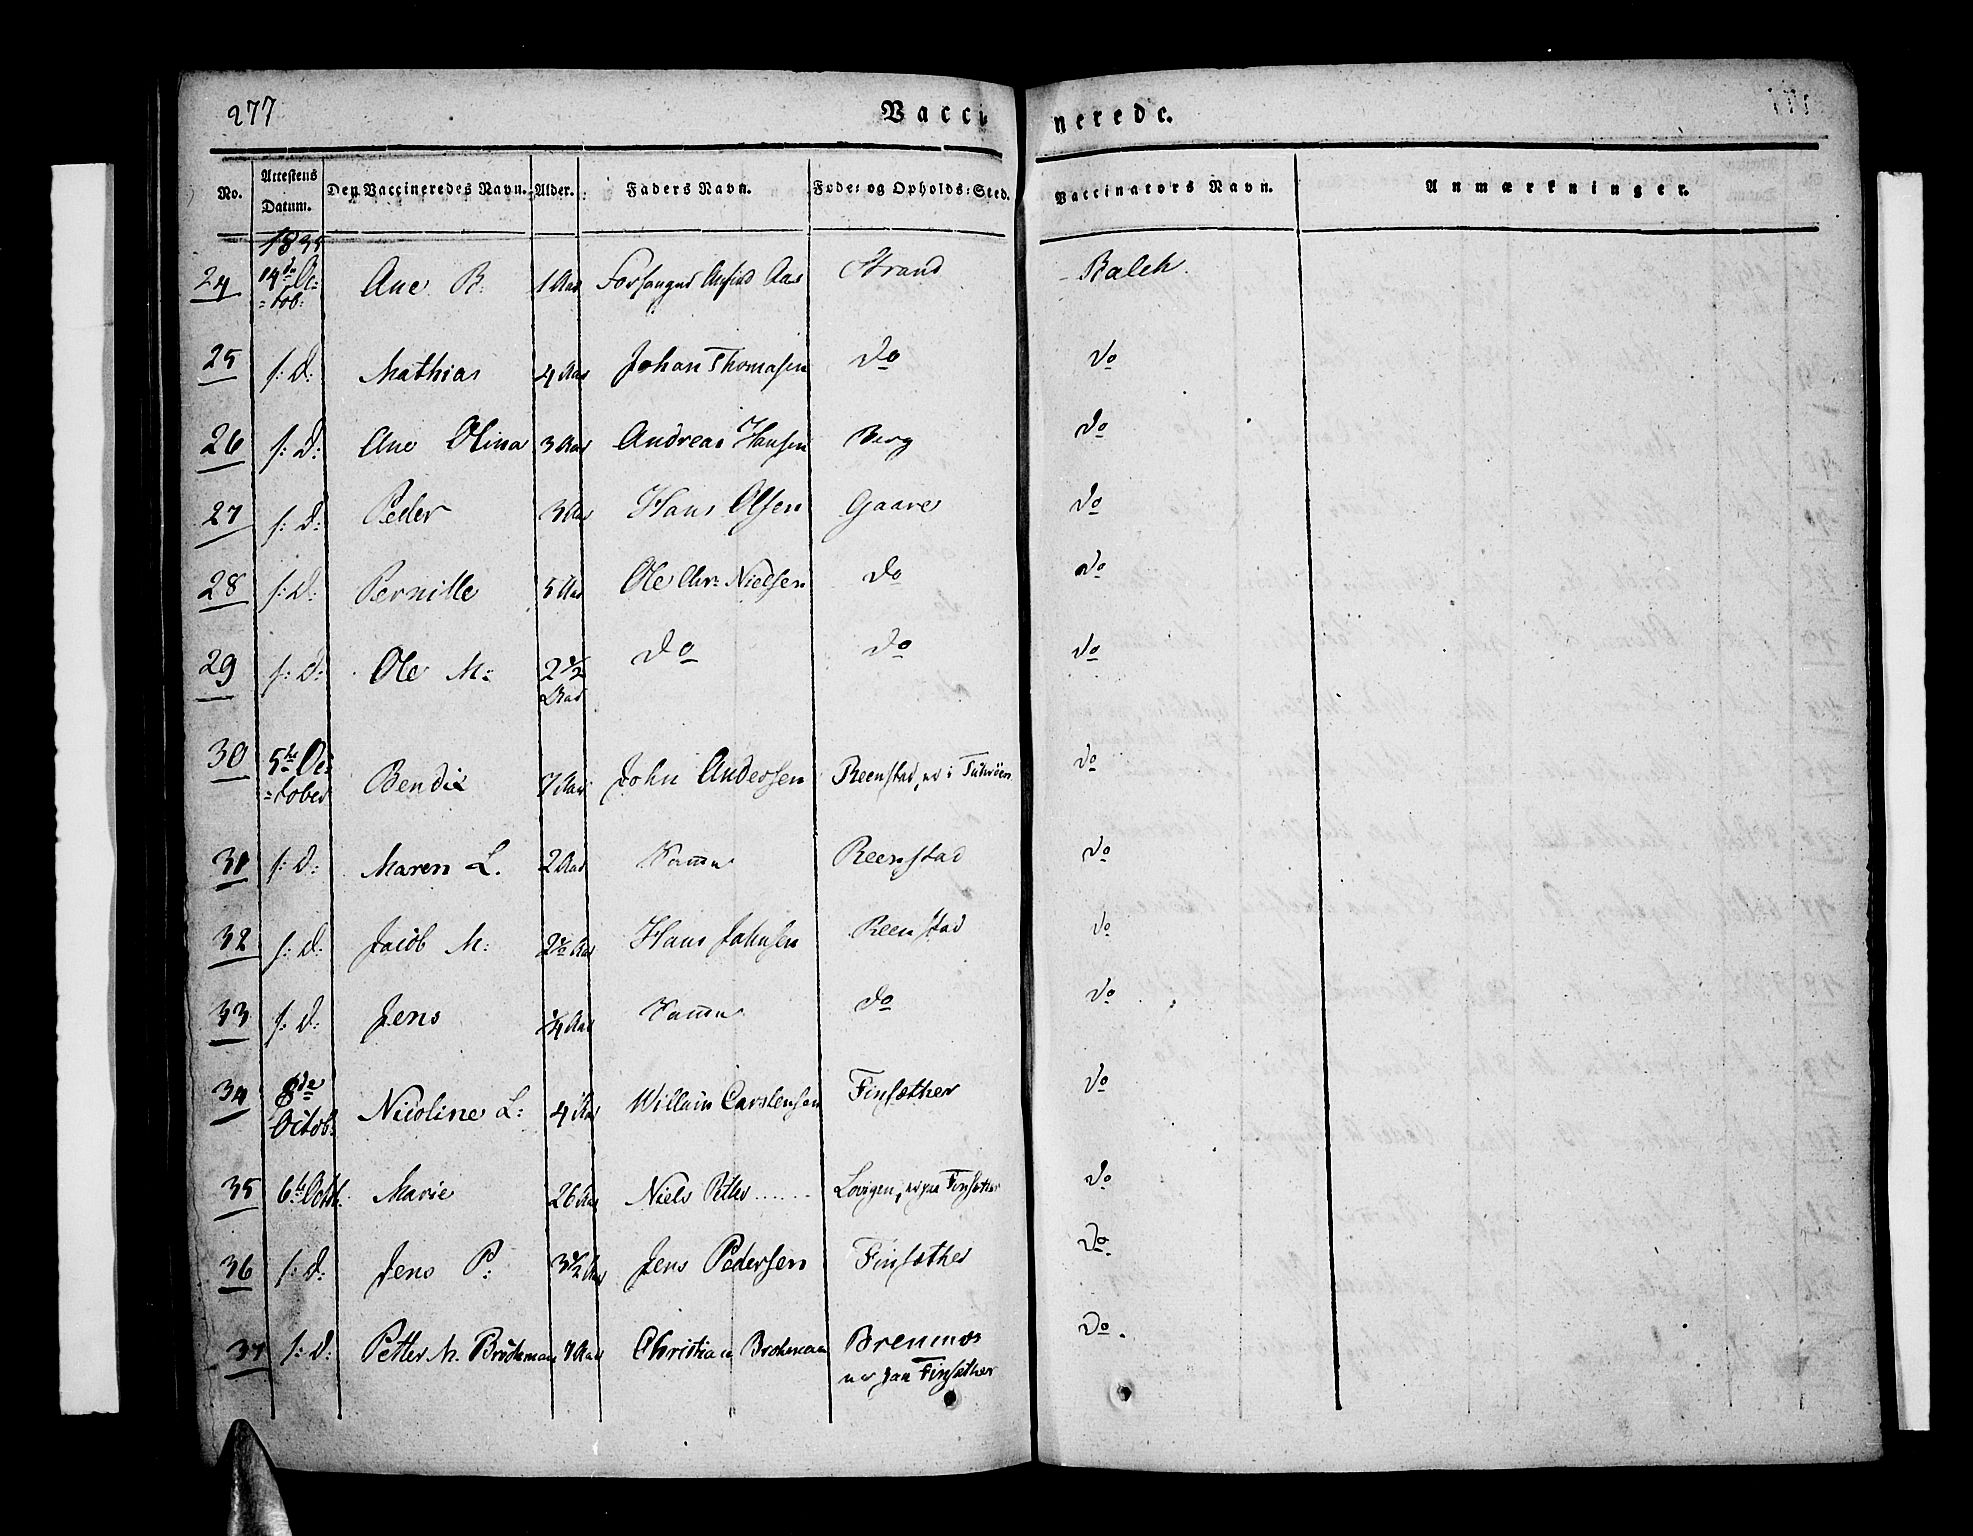 277 Vacci nerede.
No. Attestens Datum. Den Vaccineredes Navn. Alder. Faders Navn. Føde- og Opholds-Sted. Vaccinators Navn. Anmærkninger.
1835
24 14de Oc=tob: Ane B: 1 Aar Strand Balch.
25 s: D: Mathias 4 Aar Johan Thomasen do do
26 s: D: Ane Olina 3 Aar Andreas Hansen Berg do
27 s: D: Peder 3 Aar Hans Olsen Gaare do
28 s: D: Pernille 5 Aar Ole Chr: Nielsen do do
29 s: D: Ole M: 2 1/2 Aar do do do
30 5te Oc=tober Bendix 7 Aar John Andersen Reenstad, er i do
31 s: D: Maren L. 2 Aar Samme Reenstad do
32 s: D: Jacob M: Aar Hans Johnsen Reenstad do
33 s: D: Jens 1/4 Aar Samme do do
34 8de Octob: Nicoline L: 4 Aar Willum Carstensen Finsæther do
35 6te Octbr. Marie 26 Aar Niels Petter ...... er paa Finsæther do
36 s: D: Jens P: 3 1/2 Aar Jens Pedersen Finsæther do.
37 s: D: Petter M. Brochmann 7 Aar Christian Brochmann Bremnæs do.
er paa Finsæther